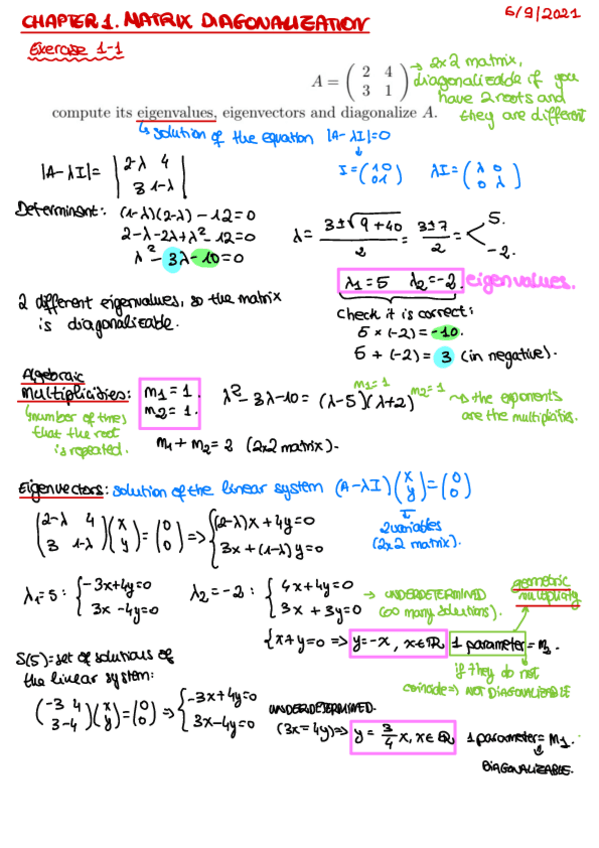 CHAPTER 1. MATRIX DIAGONALIZATION
6/9/2021
Exercise 1-1
A = ( 2 4
3 1 )
→ 2x2 matrix,
diagonalizable if you
have 2 roots and
they are different
compute its eigenvalues, eigenvectors and diagonalize A.
↳ solution of the equation |A-λI|=0
I=(1 0
0 1)
λI=(λ 0
0 λ)
|A-λI|= |2-λ 4
3 1-λ|
Determinant: (1-λ)(2-λ) - 12=0
2-λ-2λ+λ²-12=0
λ²-3λ-10=0
λ= 3±√9+40 / 2 = 3±7 / 2 = < 5.
-2.
λ1=5 λ2=-2. eigenvalues.
2 different eigenvalues, so the matrix
is diagonalizable.
Check it is correct:
5 x (-2) = -10.
5 + (-2) = 3 (in negative).
Algebraic
Multiplicities:
m1 = 1.
m2 = 1.
λ²-3λ-10= (λ-5)(λ+2)
m1=1
m2=1
→ the exponents
are the multiplicities.
↳ number of times
that the root
is repeated.
m1 + m2 = 2 (2x2 matrix).
Eigenvectors: solution of the linear system (A-λI)(x
y)=(0
0)
2 variables
(2x2 matrix).
(2-λ 4
3 1-λ)(x
y)=(0
0) => {(2-λ)x + 4y=0
3x + (1-λ)y=0
λ1=5: {-3x+4y=0
3x -4y=0
λ2=-2: {4x+4y=0
3x + 3y=0
→ UNDERDETERMINED
(∞ many solutions).
geometric
multiplicity
{x+y=0 => y=-x, x∈ℝ 1 parameter = m2.
if they do not
coincide => NOT DIAGONALIZABLE
S(5)= set of solutions of
the linear system:
(-3 4
3 -4)(x
y)=(0
0) => {-3x+4y=0
3x-4y=0
UNDERDETERMINED.
(3x=4y) => y = 3/4 x, x∈ℝ 1 parameter = m1.
DIAGONALIZABLE.